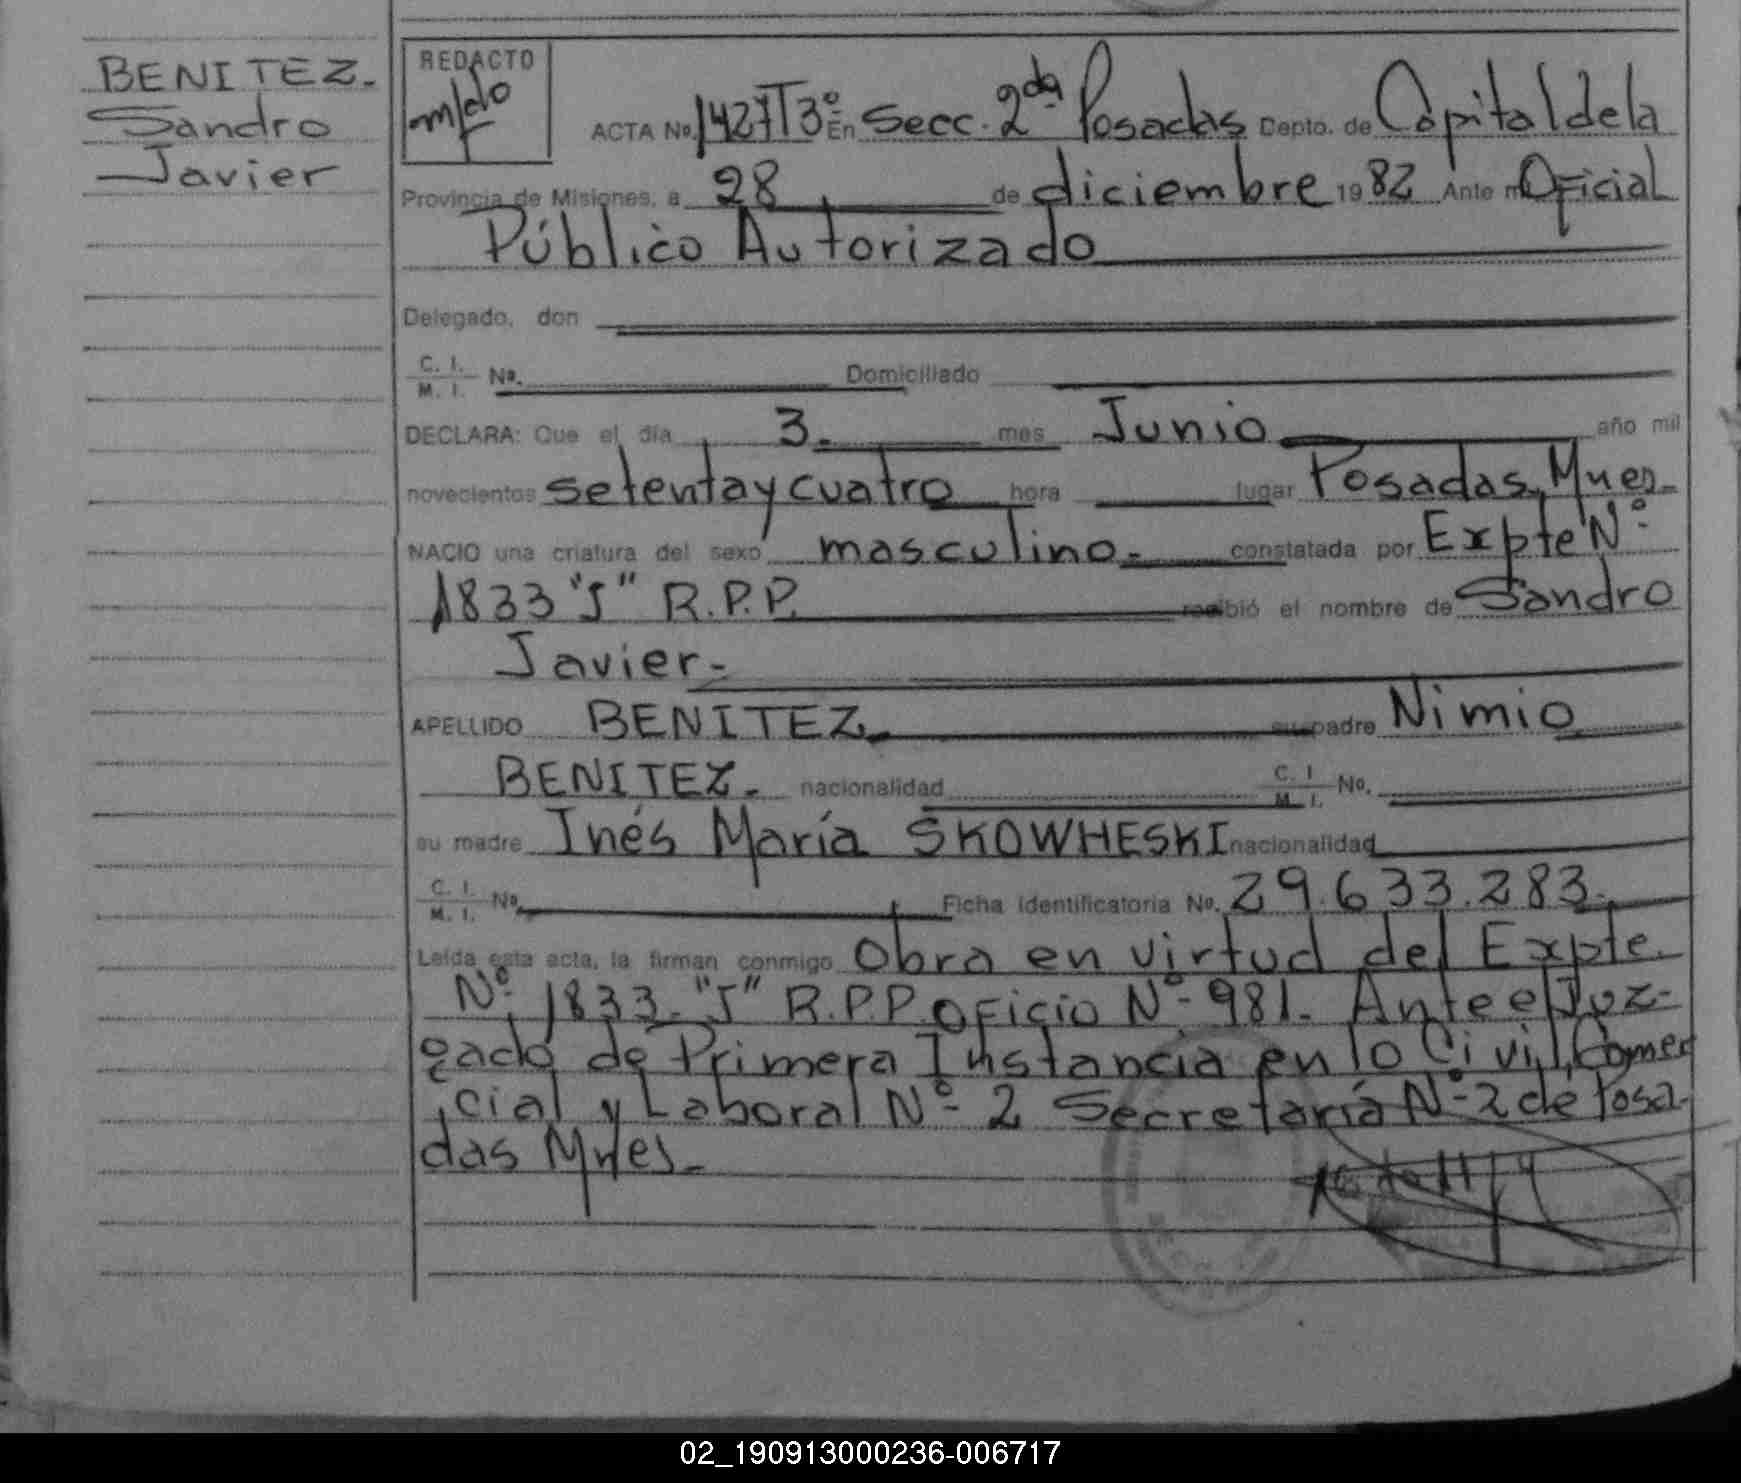 BENITEZ.
Sandro
Javier
REDACTO
ACTA No. 1427 T3º En Secc. 2da Posadas Depto. de Capital de la
Provincia de Misiones, a 28 de diciembre 1982 Ante mi Oficial
Público Autorizado
Delegado, don
C. I. / M. I. No. Domiciliado
DECLARA: Que el día 3. mes Junio año mil
novecientos setenta y cuatro hora lugar Posadas, Mnes-
NACIO una criatura del sexo masculino.- constatada por Expte Nº
1833 "J" R.P.P. recibió el nombre de Sandro
Javier.-
APELLIDO BENITEZ. su padre Nimio
BENITEZ. nacionalidad C. I. / M. I. No.
su madre Inés María SKOWHESKI nacionalidad
C. I. / M. I. No. Ficha Identificatoria No. 29.633.283.
Leída esta acta, la firman conmigo Obra en virtud del Expte.
Nº 1833. "J" R.P.P. Oficio Nº 981. Ante el Juz-
gado de Primera Instancia en lo Civil, Comer
cial y Laboral Nº 2 Secretaría Nº 2 de Posa-
das Mnes.-
02_190913000236-006717